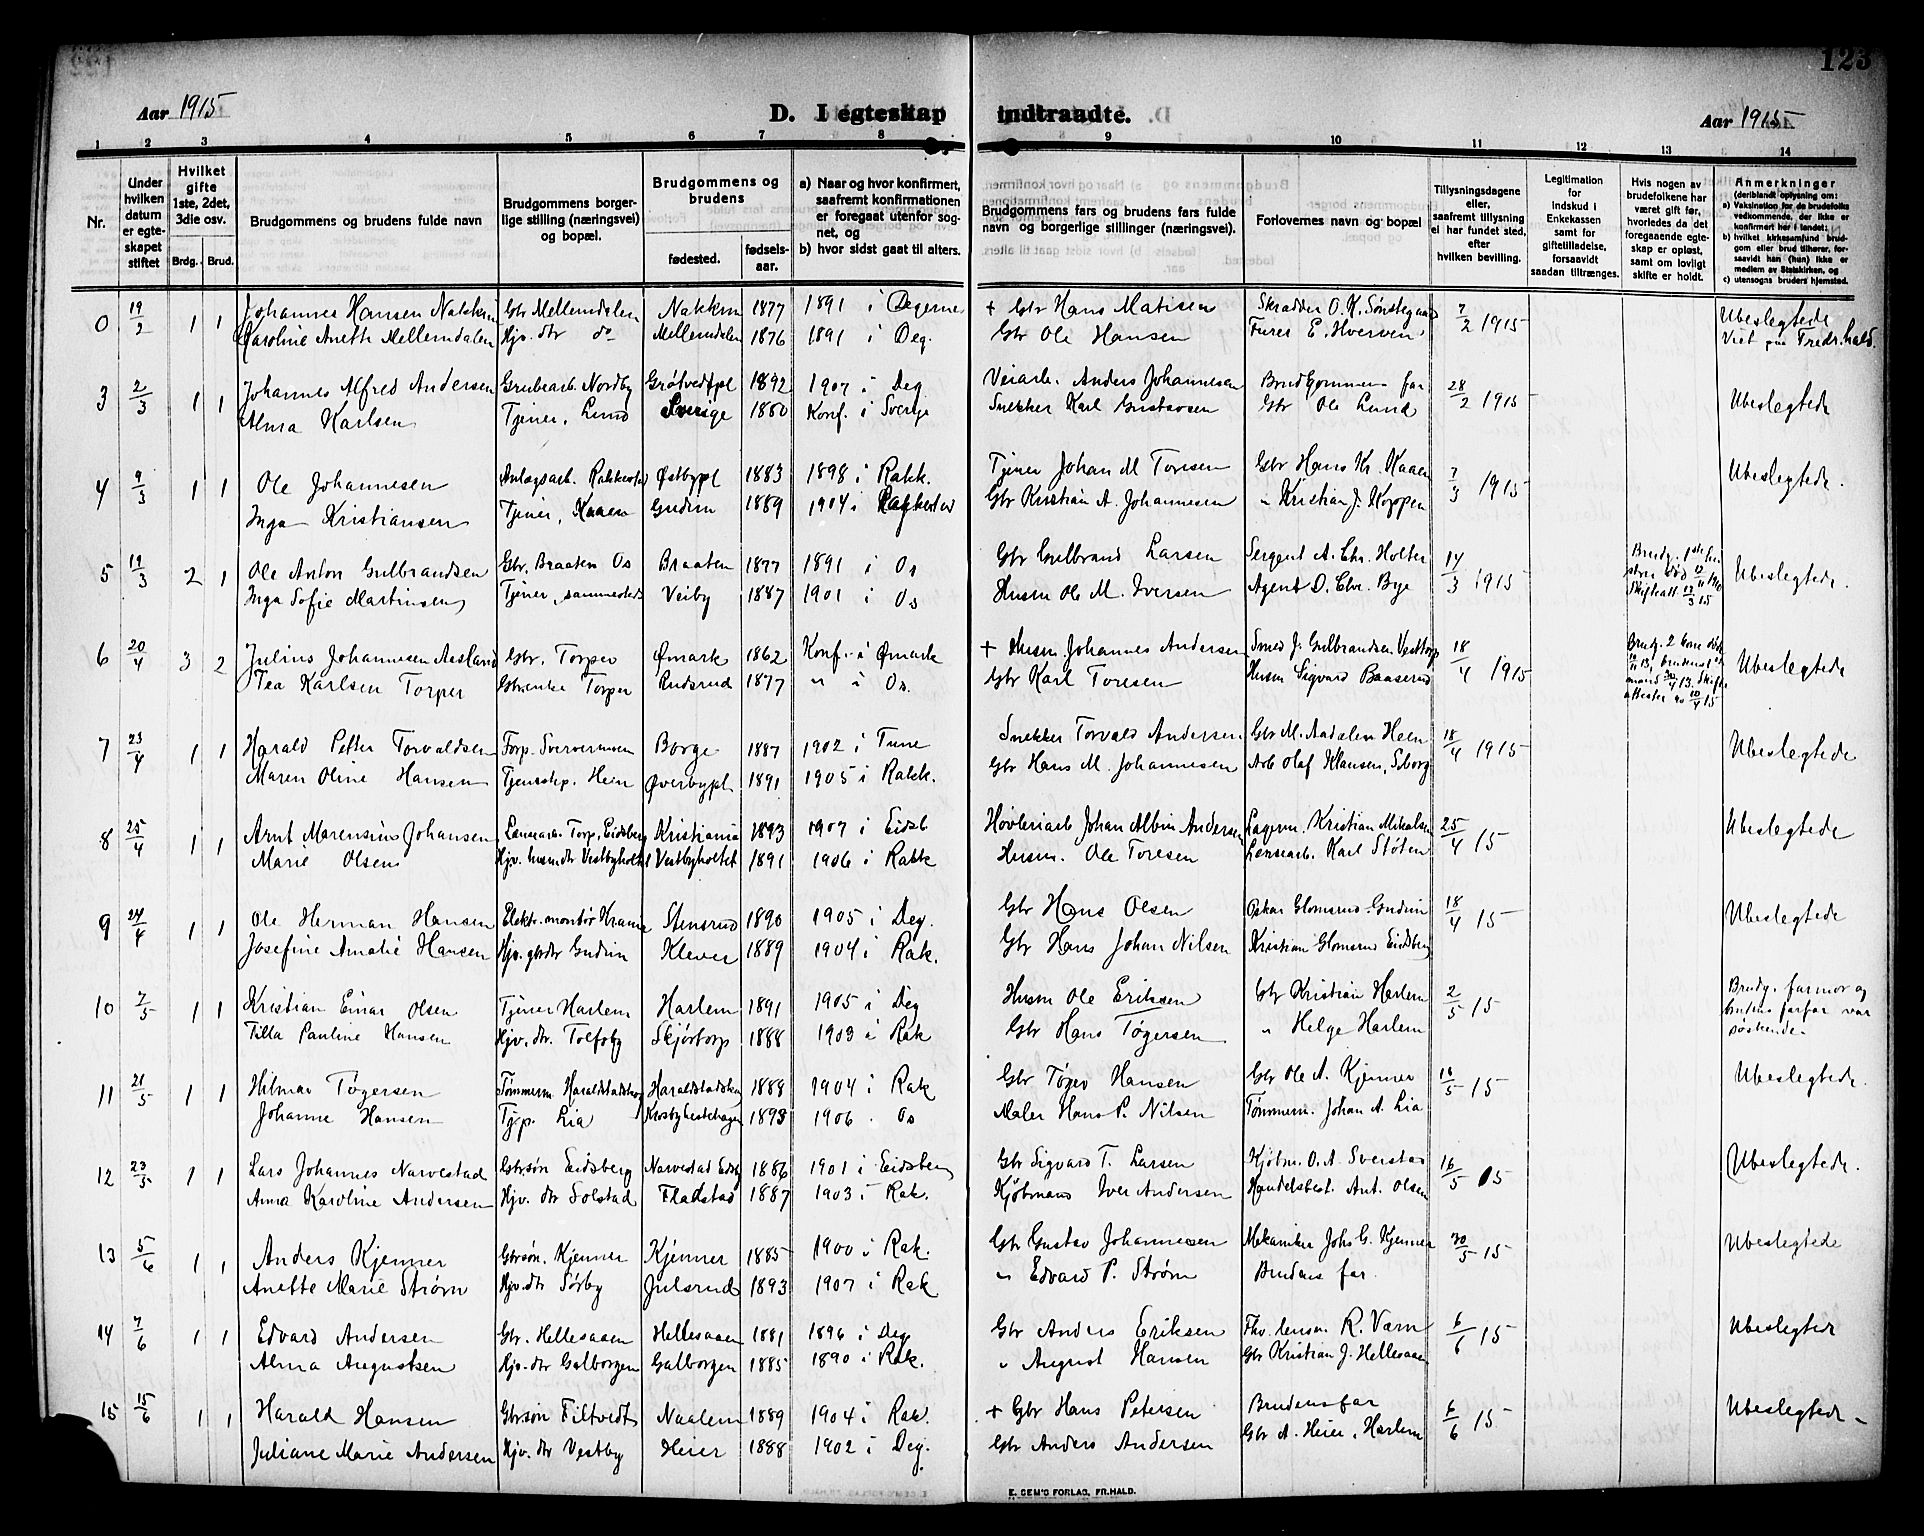 123
Aar 1915
D. I egteskap indtraadte.
Aar 1915
1 2 3 4 5 6 7 8 9 10 11 12 13 14
Nr.
Under hvilken datum er egteskapet stiftet
Hvilket gifte 1ste, 2det, 3die osv.
Brdg. Brud.
Brudgommens og brudens fulde navn
Brudgommens borgerlige stilling (næringsvei) og bopæl.
Brudgommens og brudens
fødested.
fødselsaar.
a) Naar og hvor konfirmert, saafremt konfirmationen er foregaat utenfor sognet, og
b) hvor sidst gaat til alters.
Brudgommens fars og brudens fars fulde navn og borgerlige stillinger (næringsvei).
Forlovernes navn og bopæl
Tillysningsdagene eller, saafremt tillysning ei har fundet sted, efter hvilken bevilling.
Legitimation for Indskud i Enkekassen samt for giftetilladelse, forsaavidt saadan tiltrænges.
Hvis nogen av brudefolkene har været gift før, hvorledes da det foregaaende egteskap er opløst, samt om lovligt skifte er holdt.
Anmerkninger (deriblandt oplysning om:
a) Vaksination for de brudefolks vedkommende, der ikke er konfirmert her i landet:
b) hvilket kirkesamfund brudgom eller brud tilhører, forsaavidt han (hun) ikke er medlem av Statskirken, og
c) utensogns bruders hjemsted.
0 19/2 1 1 Johannes Hansen Nakkim Gbr Mellemdalen Nakkim 1877 1891 i Degernes + Gbr Hans Matisen Skrædder O. K. Sønstegaard 7/2 1915 Ubeslegtede
Karoline Anette Mellemdalen Hjv. dtr do Mellemdalen 1876 1891 i Deg. Gbr Ole Hansen Furer E. Hverven Viet paa Fredr.hald.
3 2/3 1 1 Johannes Alfred Andersen Grubearb. Nordby Grøtvedtpl 1892 1907 i Deg Veiarb. Anders Johannesen Brudgommens far 28/2 1915 Ubeslegtede
Alma Karlsen Tjener, Lund Sverige 1880 Konf. i Sverige Snekker Karl Gustavsen Gbr Ole Lund
4 9/3 1 1 Ole Johannesen Anlægsarb. Rakkestad Østbypl 1883 1898 i Rakk. Tjener Johan M Toresen Gbr Hans Kr. Kaaen 7/3 1915 Ubeslegtede.
Inga Kristiansen Tjener, Kaaen Gudim 1889 1904 i Rakkestad Gbr Kristian A. Johannesen " Kristian J. Koppen
5 19/3 2 1 Ole Anton Gulbrandsen Gbr. Braaten Os Braaten 1877 1891 i Os Gbr Gulbrand Larsen Sergent A. Chr. Holter 14/3 1915 Ubeslegtede.
Inga Sofie Martinsen Tjener, sammesteds Veiby 1887 1901 i Os Husm Ole M. Iversen Agent D. Chr. Bye
6 20/4 3 2 Julius Johannesen Aasland Gbr. Torper Ømark 1862 Konf. i Ømark + Husm. Johannes Andersen Smed J. Gulbrandsen Vesttorp 18/4 1915 Ubeslegtede
Tea Karlsen Torper Gbrenke Torper Rudsrud 1877 " i Os. Gbr Karl Toresen Husm Sigvard Baaserud
7 23/4 1 1 Harald Petter Torvaldsen Forp. Sververenen Borge 1887 1902 i Tune Snekker Torvald Andersen Gbr M. Aadalen Heen 18/4 1915 Ubeslegtede
Maren Oline Hansen Tjenstep. Heen Øverbypl 1891 1905 i Rakk. Gbr Hans M. Johannesen Arb Olaf Klausen, Sborg
8 25/4 1 1 Arnt Marensius Johansen Lensearb. Torp, Eidsberg Kristiania 1893 1907 i Eidsb Høvleriarb Johan Albin Andersen Lagerm. Kristian Mikalsen 25/4 15 Ubeslegtede
Marie Olsen Hjv. husmdtr Vestbyholtet Vestbyholtet 1891 1906 i Rakk Husm. Ole Toresen Lensearb. Karl Støten
9 24/4 1 1 Ole Herman Hansen Elektr. montør Stensrud 1890 1905 i Deg. Gbr Hans Olsen Oskar Glomsrud Gudim 18/4 15 Ubeslegtede
Josefine Amalie Hansen Hjv. gbrdtr Gudim Klever 1889 1904 i Rak. Gbr Hans Johan Nilsen Kristian Glomsrud Eidsberg
10 7/5 1 1 Kristian Einar Olsen Tjener Harlem Harlem 1891 1905 i Deg Husm Ole Eriksen Gbr Kristian Harlem 2/5 15 Brudg. farmor og
Tilla Pauline Hansen Hjv. dtr. Tolfsby Skjørtorp 1888 1903 i Rak Gbr Hans Tøgersen " Helge Harlem brudens farfar var søskende.
11 21/5 1 1 Hilmar Tøgersen Tømmerm. Haraldstadskog Haraldstadskog 1888 1904 i Rak Gbr Tøger Hansen Gbr Ole A. Kjenner 16/5 15 Ubeslegtede.
Johanne Hansen Tjp. Lia 1893 1906 Os Maler Hans P. Nilsen Tømmerm. Johan A. Lia
12 23/5 1 1 Lars Johannes Narvestad Gbrsøn Eidsberg Narvestad Eidsb 1886 1901 i Eidsberg Gbr Sigvard T. Larsen Kjøbm. O. A. Sverstad 16/5 15 Ubeslegtede.
Anna Karoline Andersen Hjv. dtr Solstad Fladstad 1887 1903 i Rak. Kjøbmand Iver Andersen Handelsbest. Ant. Olsen
13 5/6 1 1 Anders Kjenner Gbrsøn. Kjenner Kjenner 1885 1900 i Rak. Gbr Gustav Johannesen Mekaniker Johs G. Kjenner 30/5 15 Ubeslegtede
Anette Marie Strøm Hjv. dtr Sørby Julsrud 1893 1907 i Rak " Edvard P. Strøm Brudens far.
14 7/6 1 1 Edvard Andersen Gbr. Hellesaaen Hellesaaen 1881 1896 i Deg Gbr Anders Eriksen R. Værn 6/6 15 Ubeslegtede
Alma Augustsen Hjv. dtr Galborgen Galborgen 1885 1890 i Rak. " August Hansen Gbr Kristian J. Hellesaaen
15 15/6 1 1 Harald Hansen Gbrsøn Filtvedt Naalem 1889 1904 i Rak. + Gbr Hans Petersen Brudens far 6/6 15 Ubeslegtede
Juliane Marie Andersen Hjv. dtr Vestby Heier 1888 1902 i Deg. Gbr Anders Andersen Gbr A. Heier, Harlem
E. GEM'S FORLAG, FR.HALD.